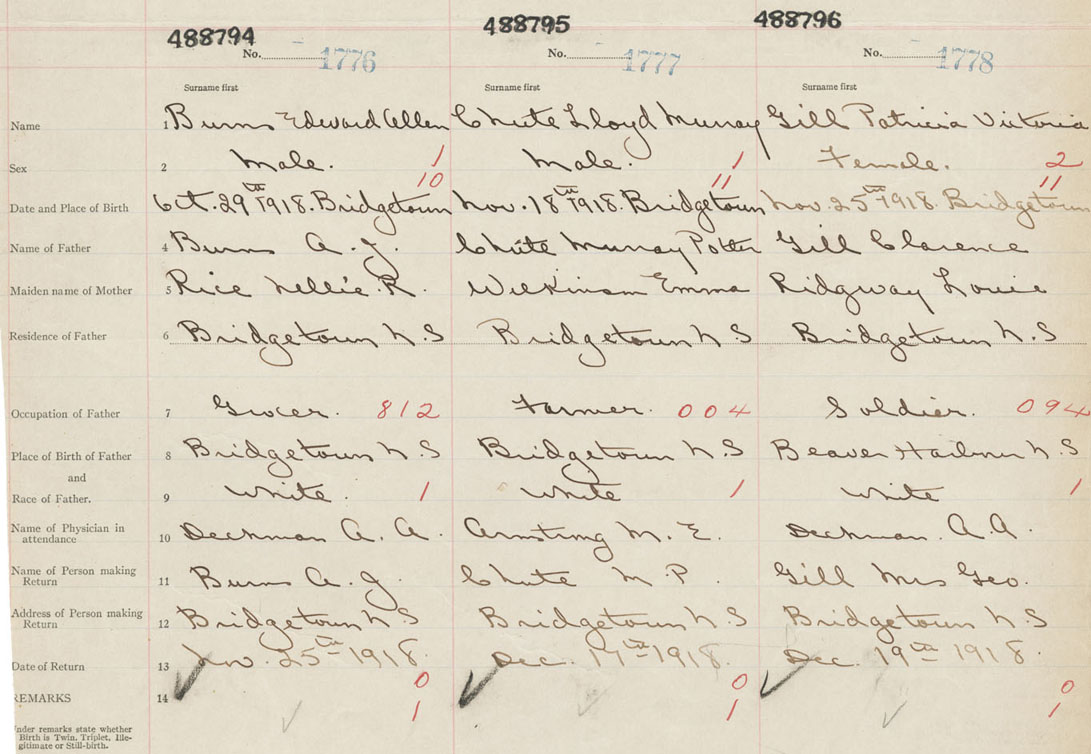 488794 488795 488796
No. 1776 No. 1777 No. 1778
Surname first Surname first Surname first
Name 1 Burns Edward Allen Chute Lloyd Murray Gill Patricia Victoria
Sex 2 Male. 1 Male. 1 Female. 2
10 11 11
Date and Place of Birth Oct. 29th 1918. Bridgetown Nov. 18th 1918. Bridgetown Nov. 25th 1918. Bridgetown
Name of Father 4 Burns A. J. Chute Murray Potter Gill Clarence
Maiden name of Mother 5 Rice Nellie. R. Wilkinson Emma Ridgway Louie
Residence of Father 6 Bridgetown N.S Bridgetown N.S Bridgetown N.S
Occupation of Father 7 Grocer. 812 Farmer. 004 Soldier. 094
Place of Birth of Father 8 Bridgetown N.S Bridgetown N.S Beaver Harbour N.S
and
Race of Father. 9 White. 1 White 1 White 1
Name of Physician in
attendance 10 Deckman A. A. Armstrong M. E. Deckman. A.A.
Name of Person making
Return 11 Burns A. J. Chute M.P. Gill Mrs Geo.
Address of Person making
Return 12 Bridgetown N.S Bridgetown N.S Bridgetown N.S
Date of Return 13 Nov. 25th 1918. Dec. 1918. Dec. 19th 1918.
0 0 0
REMARKS 14
1 1 1
Under remarks state whether
Birth is Twin, Triplet, Ille-
gitimate or Still-birth.